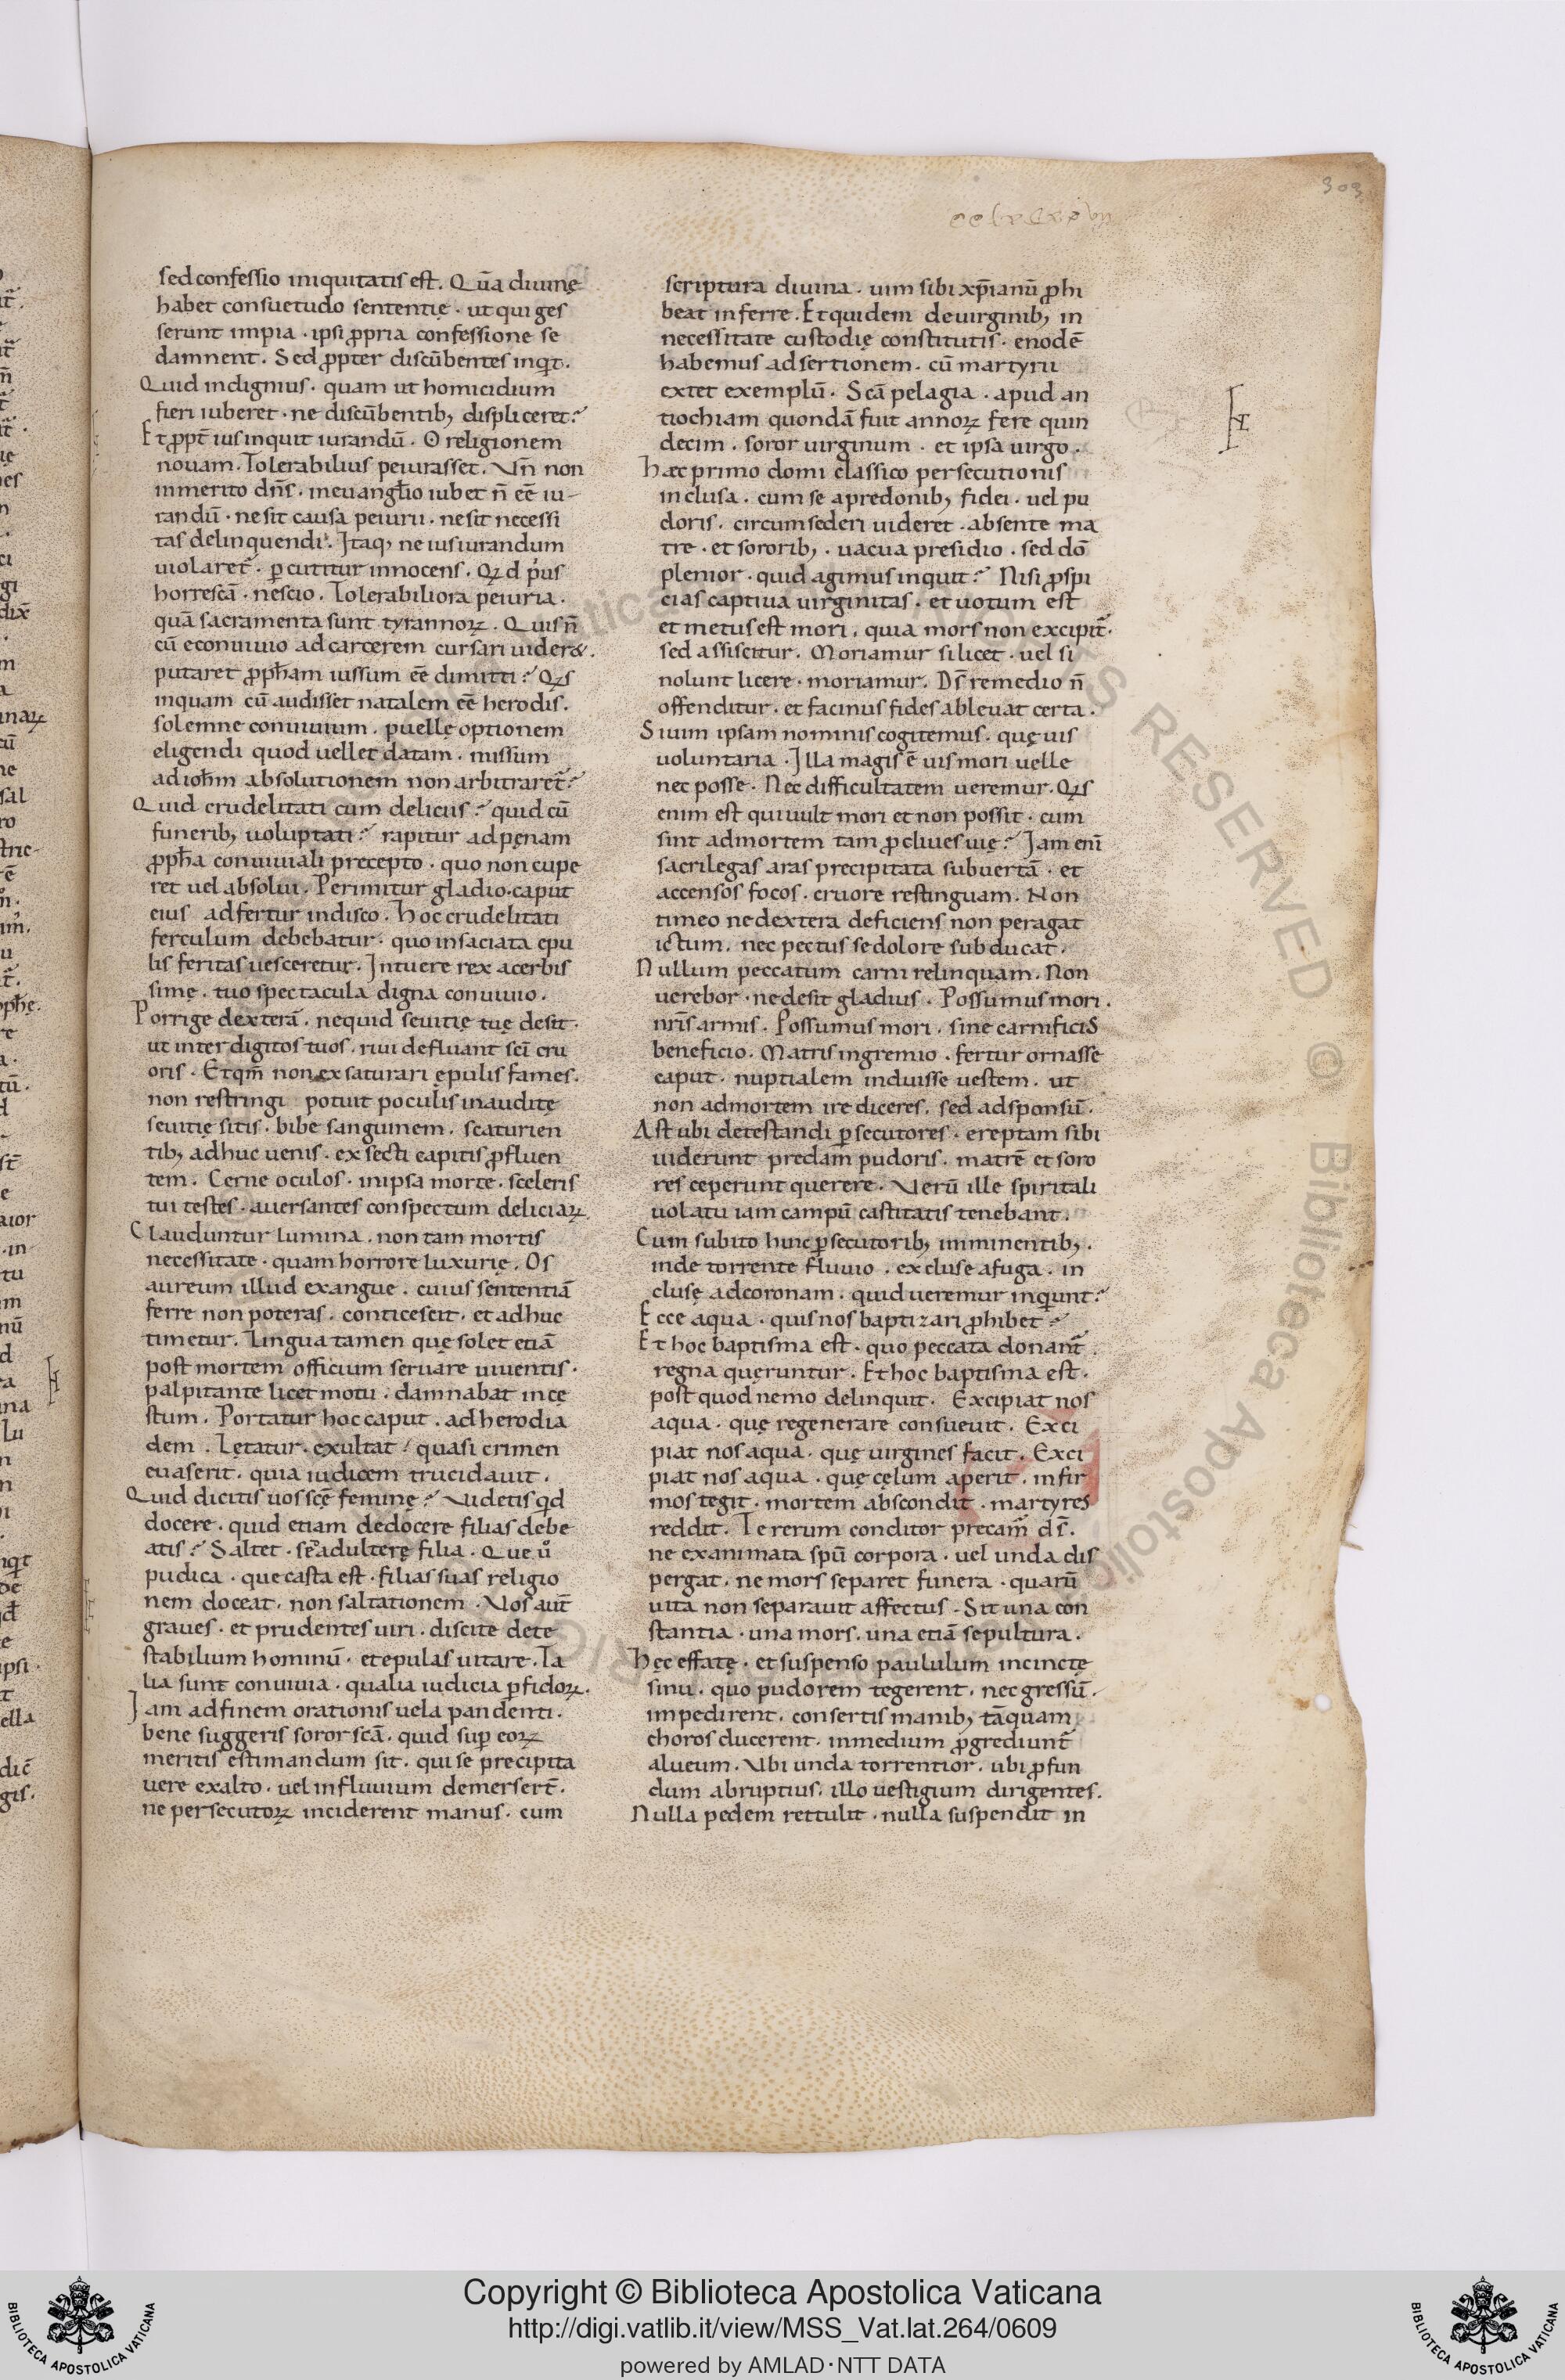 303
sed confessio iniquitatis est. Qūa diuinę
habet consuetudo sententię · ut qui ges
serunt impia · ipsi ꝓpria confessione se
damnent. Sed ꝓpter discūbentes inqͥt.
Quid indignius · quam ut homicidium
fieri iuberet · ne discūbentib; displiceret?
Et ꝓpt̄ iusinquit iurandū · O religionem
nouam. Tolerabilius peiurasset. Vn̄ non
inmerito dn̄s · ineuangł̄io iubet n̄ eē iu-
randū · nesit causa peiurii · nesit necessi
tas delinquendi. Itaq; ne iusiurandum
uiolaret᷑ · ꝑcutitur innocens. Qꝫd pͥus
horrescā · nescio. Tolerabiliora peiuria ·
quā sacramenta sunt tyrannoꝝ. Quis n̄
cū econuiuio ad carcerem cursari uider&.
putaret ꝓph̄am iussum eē dimitti? Qꝫs
inquam cū audisset natalem eē herodis.
solemne conuiuium · puellę optionem
eligendi quod uellet datam · missum
ad ioh̄m absolutionem non arbitraret᷑?
Quid crudelitati cum deliciis? quid cū
funerib; uoluptati? rapitur ad pęnam
ꝓph̄a conuiuiali precepto · quo non cupe
ret uel absolui. Perimitur gladio · caput
eius adfertur indisco. Hoc crudelitati
ferculum debebatur · quo insaciata epu
lis feritas uesceretur. Intuere rex acerbis
simę · tuo spectacula digna conuiuio.
Porrige dexterā · nequid seuitię tuę desit ·
ut inter digitos tuos · riui defluant sc̄i cru
oris. Et qm̄ non exsaturari ępulis fames.
non restringi potuit poculis inauditę
seuitię sitis · bibe sanguinem · scaturien
tib; adhuc uenis · ex secti capitis ꝓfluen
tem. Cerne oculos · inipsa morte · sceleris
tui testes · auersantes conspectum deliciaꝝ.
Clauduntur lumina · non tam mortis
necessitate · quam horrore luxurię. Os
aureum illud exangue · cuius sententiā
ferre non poteras · conticescit · et adhuc
timetur. Lingua tamen quę solet etiā
post mortem officium seruare uiuentis ·
palpitante licet motu · damnabat incę
stum. Portatur hoc caput · ad herodia
dem. Lętatur · exultat · quasi crimen
euaserit · quia iudicem trucidauit.
Quid dicitis uos sc̄ę feminę? Videtis qͥd
docere · quid etiam dedocere filias debe
atis? Saltet · sed adulterę filia. Que uͦ
pudica · que casta est · filias suas religio
nem doceat · non saltationem. Vos aut̄
graues · et prudentes uiri · discite dete
stabilium hominū · et epulas uitare. Ta
lia sunt conuiuia · qualia iudicia ꝑfidoꝝ.
Iam ad finem orationis uela pandenti.
bene suggeris soror sc̄a · quid suꝑ eoꝝ
meritis estimandum sit · qui se precipita
uere exalto · uel influuium demersert̄ ·
ne persecutoꝝ inciderent manus · cum
scriptura diuina · uim sibi xp̄ianū ꝓhi
beat inferre. Et quidem deuirginib; in
necessitate custodię constitutis · enodē
habemus adsertionem · cū martyrii
extet exemplū. Sc̄a pelagia · apud an
tiochiam quondā fuit annoꝝ fere quin
decim · soror uirginum · et ipsa uirgo.
Hæc primo domi classico persecutionis
inclusa · cum se apredonib; fidei · uel pu
doris · circumsederi uideret · absente ma
tre · et sororib; · uacua presidio · sed dō
plenior · quid agimus inquit? Nisi ꝓspi
cias captiua uirginitas · et uotum est
et metus est mori · quia mors non excipit᷑ ·
sed assiscitur. Moriamur si licet · uel si
nolunt licere · moriamur. Ds̄ remedio n̄
offenditur · et facinus fides ableuat certa.
Si uim ipsam nominis cogitemus · quę uis
uoluntaria. Illa magis ē uis mori uelle
nec posse. Nec difficultatem ueremur. Qꝫs
enim est qui uult mori et non possit · cum
sint admortem tam ꝓcliues uię? Iam eni
sacrilegas aras precipitata subuertā · et
accensos focos · cruore restinguam. Non
timeo nedextera deficiens non peragat
ictum · nec pectus se dolore subducat.
Nullum peccatum carni relinquam. Non
uerebor · nedesit gladius. Possumus mori.
nr̄is armis. Possumus mori · sine carnificis
beneficio. Matris ingremio · fertur ornasse
caput · nuptialem induisse uestem · ut
non admortem ire diceres · sed adsponsū.
Ast ubi detestandi ꝑsecutores · ereptam sibi
uiderunt predam pudoris · matrē et soro
res ceperunt querere. Verū ille spiritali
uolatu iam campū castitatis tenebant.
Cum subito hinc ꝑsecutorib; imminentib;.
inde torrente fluuio · excluse afuga · in
clusę adcoronam · quid ueremur inqͥunt?
Ecce aqua · quis nos baptizari ꝓhibet?
Et hoc baptisma est · quo peccata donant᷑.
regna quęruntur. Et hoc baptisma est.
post quod nemo delinquit. Excipiat nos
aqua · quę regenerare consueuit. Exci
piat nos aqua · quę uirgines facit. Exci
piat nos aqua · quę cęlum aperit · infir
mos tegit · mortem abscondit · martyres
reddit. Te rerum conditor precam᷑ ds̄.
ne exanimata spū corpora · uel unda dis
pergat · ne mors separet funera · quarū
uita non separauit affectus. Sit una con
stantia · una mors · una etiā sepultura.
Hęc effatę · et suspenso paululum incinctę
sinu · quo pudorem tegerent · nec gressū.
impedirent · consertis manib; tāquam
choros ducerent · inmedium ꝓgrediunt᷑
alueum. Vbi unda torrentior · ubi ꝓfun
dum abruptius · illo uestigium dirigentes.
Nulla pedem rettulit · nulla suspendit in
Copyright © Biblioteca Apostolica Vaticana
http://digi.vatlib.it/view/MSS_Vat.lat.264/0609
powered by AMLAD·NTT DATA
BIBLIOTECA APOSTOLICA VATICANA
BIBLIOTECA APOSTOLICA VATICANA